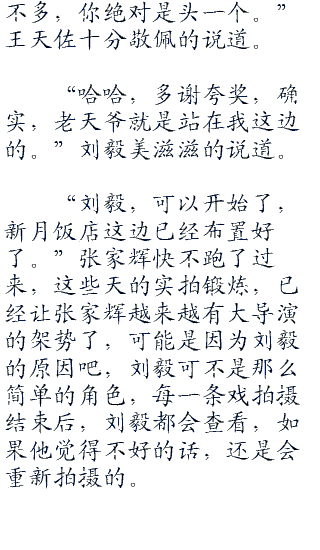 不多，你绝对是头一个。”
王天佐十分敬佩的说道。
“哈哈，多谢夸奖，确
实，老天爷就是站在我这边
的。”刘毅美滋滋的说道。
“刘毅，可以开始了，
新月饭店这边已经布置好
了。”张家辉快不跑了过
来，这些天的实拍锻炼，已
经让张家辉越来越有大导演
的架势了，可能是因为刘毅
的原因吧，刘毅可不是那么
简单的角色，每一条戏拍摄
结束后，刘毅都会查看，如
果他觉得不好的话，还是会
重新拍摄的。